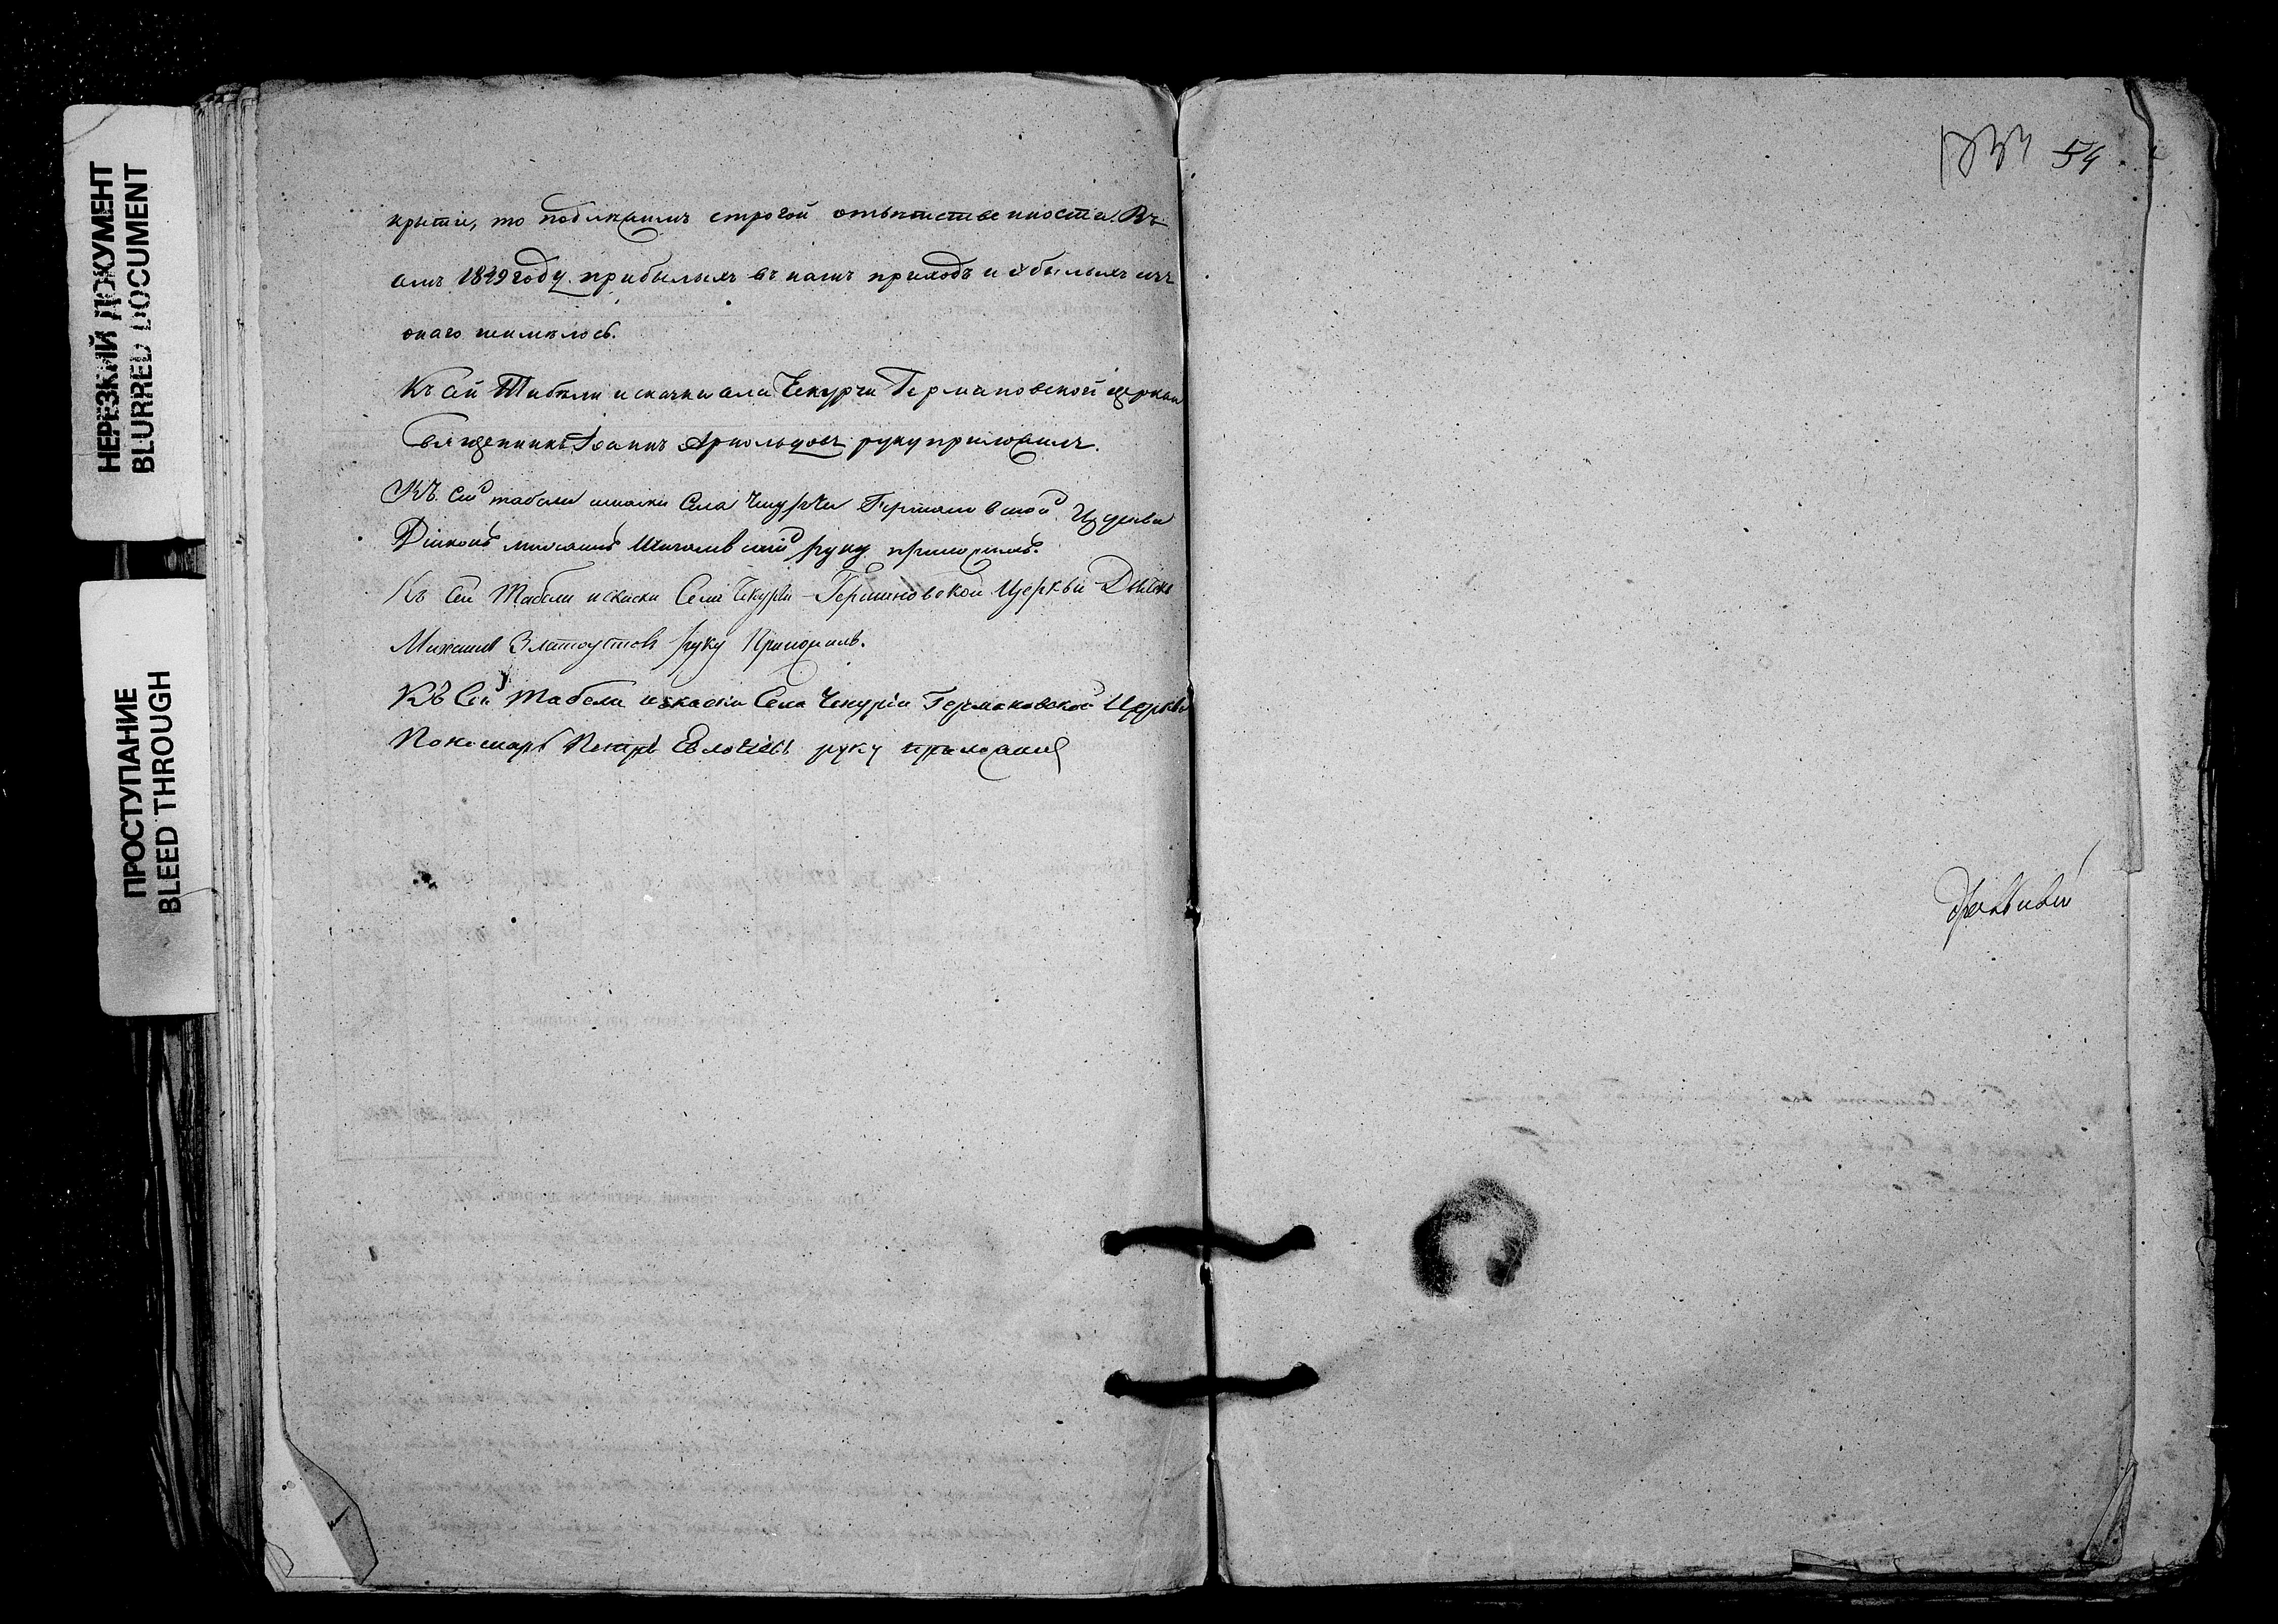 НЕРЕЗКИЙ ДОКУМЕНТ
BLURRED DOCUMENT
ПРОСТУПАНИЕ
BLEED THROUGH
крытіи, то подлежимъ строгой отвѣтственности. Въ
семъ 1849 году прибылыхъ въ нашъ приходъ и убылыхъ изъ
онаго неимѣлось.
Къ сей Табели и сказки села Чекурчи Германовской церкви
Священникъ Іоаннъ Арнольдовъ руку приложилъ.
Къ сей табели и скаски Села Чекурчи Германовской Церкви
Діаконъ руку приложилъ.
Къ сей Табели и скаски Села Чекурчи Германовской Церкви Дьячекъ
Михаилъ Златоустовъ руку Приложилъ.
Къ Сей Табели искаски Села Чекурчи Германовской Церкви
Пономарь Петръ руку приложилъ
54